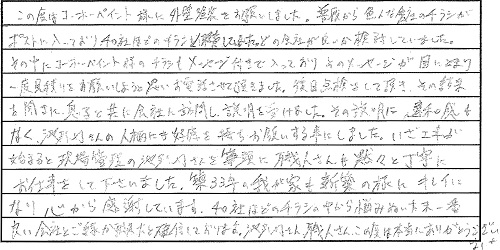 この度はユーホーペイント様に外壁塗装をお願いしました。普段から色んな会社のチラシが
ポストに入っており40社ほどのチラシを どの会社が良いか検討していました。
その中にユーホーペイント様のチラシもメッセージ付きで入っており そのメッセージが目にとまり
一度見積りをお願いしようと思いお電話させて頂きました。後日点検をして頂き、その結果
を聞きに息子と共に会社に訪問し、説明を受けました。その説明に違和感も
なく、 さんの人柄にも好感を持ちお願いする事にしました。いざ工事が
始まると現場管理の さんを筆頭に職人さんも黙々と丁寧に
お仕事をして下さいました。築33年の我が家も新築の様にキレイに
なり心から感謝しています。40社ほどのチラシの中から悩みぬいた末一番
良い会社とご縁が持てたと確信しております。 さん、職人さん、この度は本当にありがとうございました。